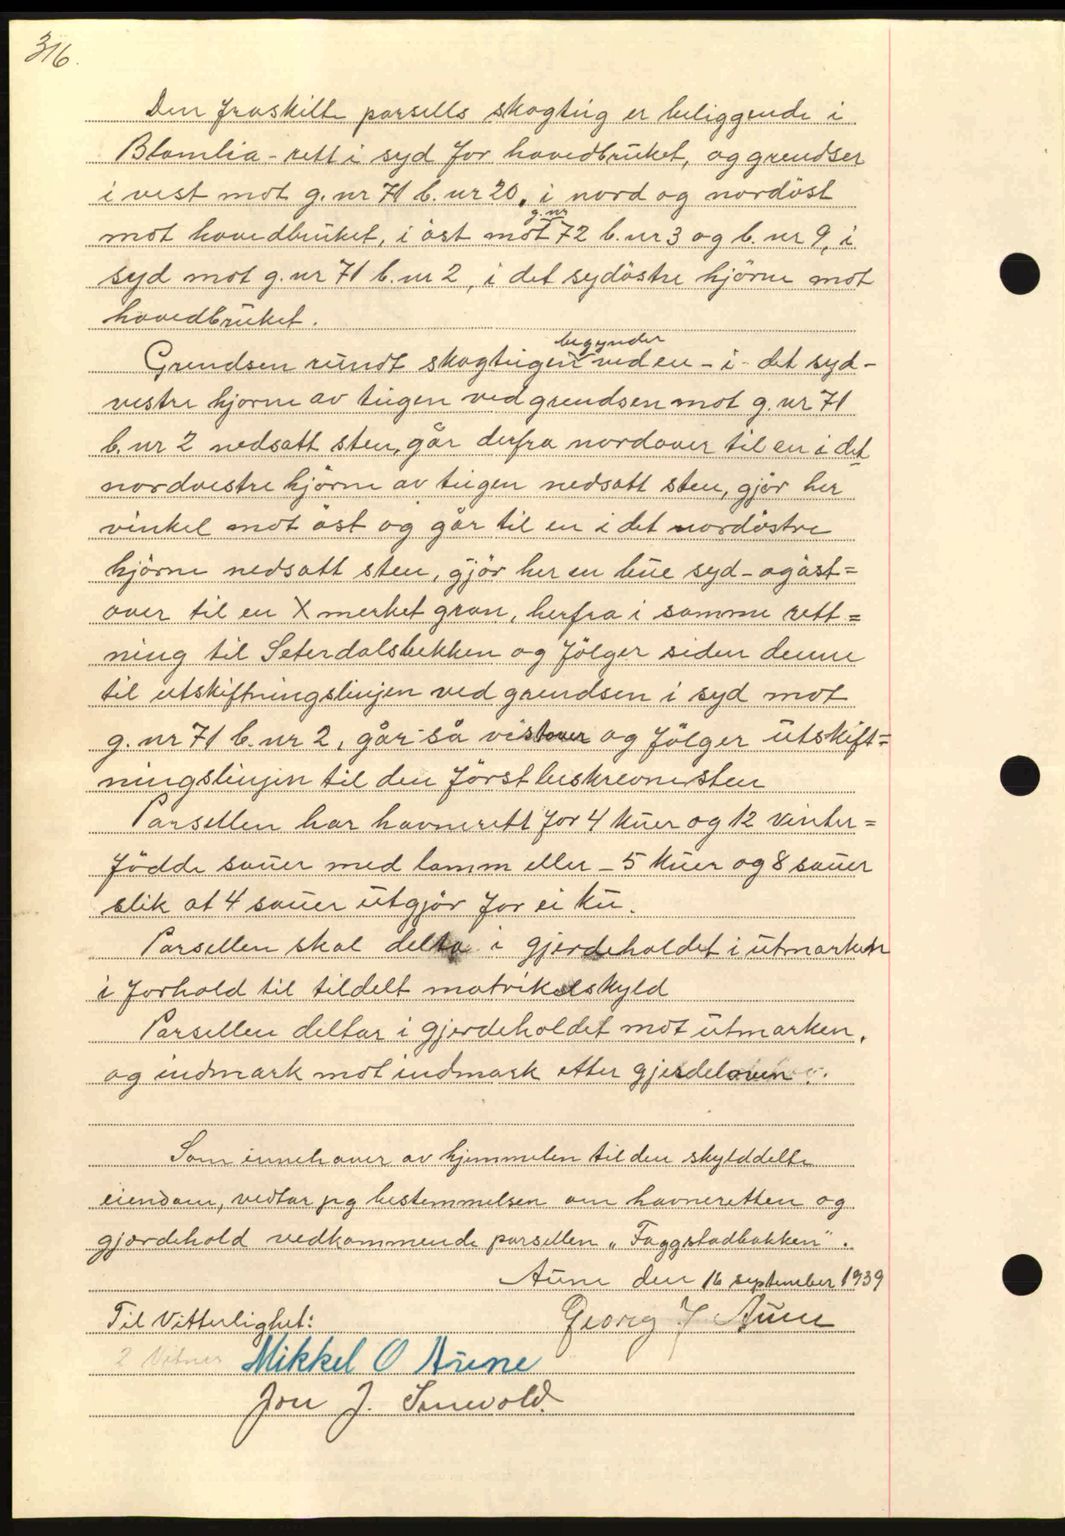 316.
Den fraskilte parsells skogteig er beliggende i
Blomlia - rett i syd for hovedbruket, og grendser
i vest mot g. nr 71 b. nr 20, i nord og nordöst
mot hovedbruket, i öst mot g. nr 72 b. nr 3 og b. nr 9, i
syd mot g. nr 71 b. nr 2, i det sydöstre hjörne mot
hovedbruket.
Grendsen rundt skogteigen begynder ved en - i - det syd-
vestre hjorne av teigen ved grendsen mot g. nr 71
b. nr 2 nedsatt sten, går derfra nordover til en i det
nordvestre hjörne av teigen nedsatt sten, gjör her
vinkel mot öst og går til en i det nordöstre
hjörne nedsatt sten, gjör her en bue syd - og öst=
over til en X merket gran, herfra i samme rett=
ning til Seterdalsbekken og fölger siden denne
til utskiftningslinjen ved grendsen i syd mot
g. nr 71 b. nr 2, går så vestover og fölger utskift=
ningslinjen til den först beskrevne sten
Parsellen har havnerett for 4 kuer og 12 vinter=
födde sauer med lamm eller - 5 kuer og 8 sauer
slik at 4 sauer utgjör for ei ku.
Parsellen skal delta i gjerdeholdet i utmarken
i forhold til tildelt matrikelskyld
Parsellen deltar i gjerdeholdet mot utmarken,
og indmark mot indmark etter gjerdeloven.
Som innehaver av hjemmelen til den skylddelte
eiendom, vedtar jeg bestemmelsen om havneretten og
gjærdehold vedkommende parsellen „Faggstadbakken".
Aune den 16 september 1939
Til Vitterlighet: Georg J Aune
2 Vitner Mikkel O Aune
Jon J.